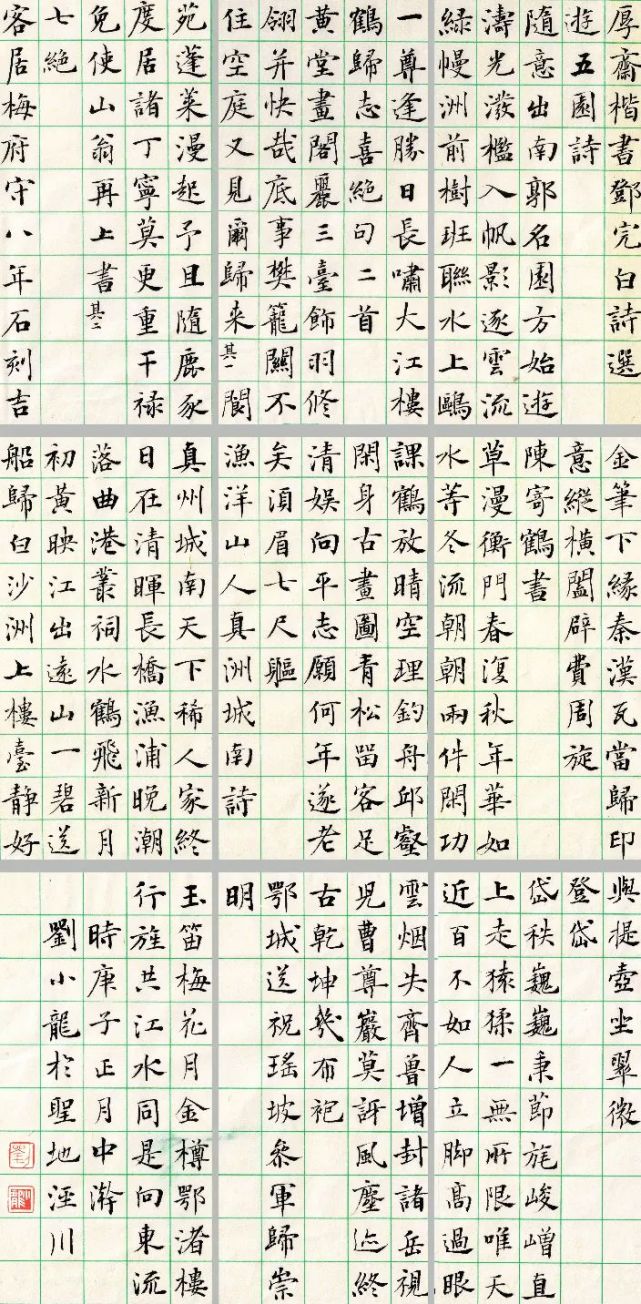 厚齋楷書鄧完白詩選
遊五園詩
隨意出南郭名園方始遊
濤光潑檻入帆影逐雲流
綠幔洲前樹班聯水上鷗
一尊逢勝日長嘯大江樓
鶴歸志喜絕句二首
黃堂畫閣麗三臺飾羽修
翎并快哉底事樊籠關不
住空庭又見爾歸來其一閬
苑蓬萊漫起予且隨鹿豕
度居諸丁寧莫更重干祿
免使山翁再上書其二
七絕
客居梅府守八年石刻吉
金筆下緣秦漢瓦當歸印
意縱橫闔辟費周旋
陳寄鶴書
草漫衡門春復秋年華如
水等冬流朝朝兩件閑功
課鶴放晴空理釣舟邱壑
閑身古畫圖青松留客足
清娛向平志願何年遂老
矣須眉七尺軀
漁洋山人真洲城南詩
真州城南天下稀人家終
日在清暉長橋漁浦晚潮
落曲港叢祠水鶴飛新月
初黃映江出遠山一碧送
船歸白沙洲上樓臺靜好
與提壺坐翠微
登岱
岱秩巍巍秉節旄峻嶒直
上走猿猱一無所限唯天
近百不如人立脚高過眼
雲烟失齊魯增封諸岳視
兒曹尊嚴莫訝風塵迹終
古乾坤幾布袍
鄂城送祝瑤坡參軍歸崇
明
玉笛梅花月金樽鄂渚樓
行旌共江水同是向東流
時庚子正月中澣
劉小龍於聖地涇川